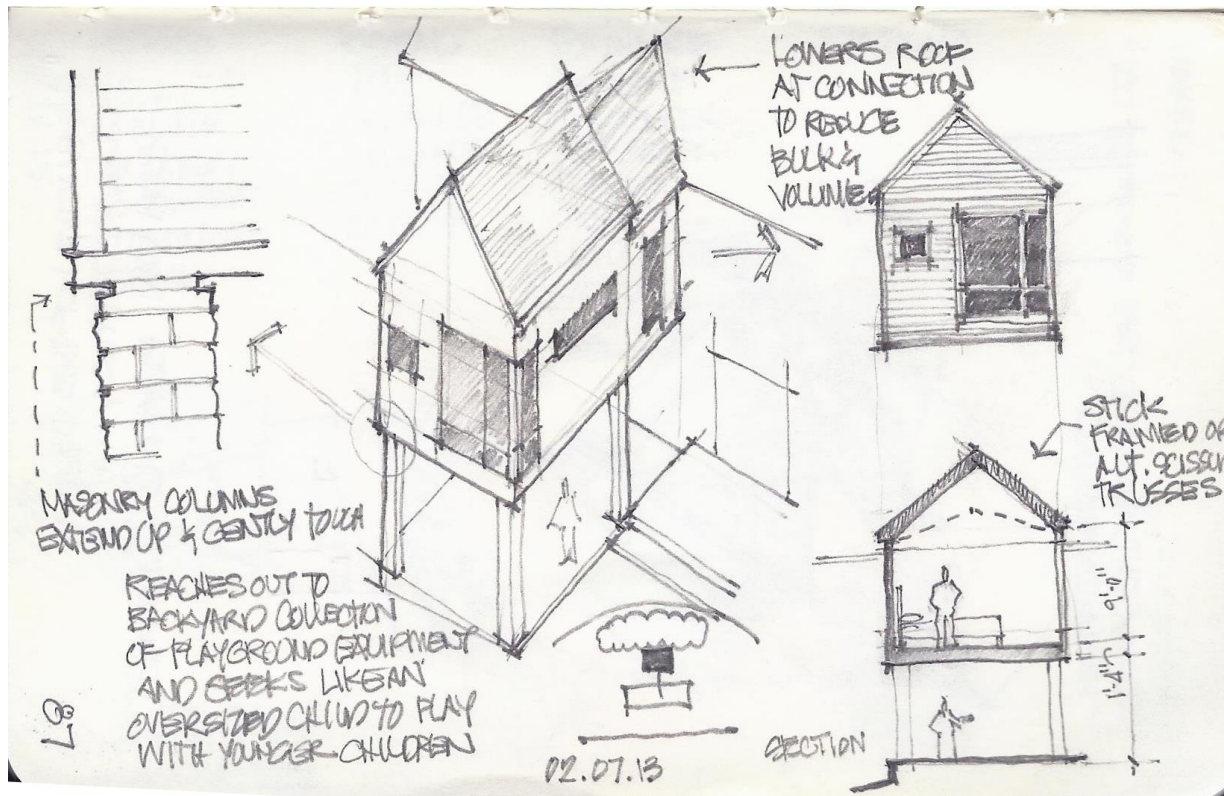 LOWERS ROOF
AT CONNECTION
TO REDUCE
BULK &
VOLUME
STICK
FRAMED OR
ALT. SCISSOR
TRUSSES
MASONRY COLUMNS
EXTEND UP & GENTLY TOUCH
REACHES OUT TO
BACKYARD COLLECTION
OF PLAYGROUND EQUIPMENT
AND SEEKS LIKE AN
OVERSIZED CHILD TO PLAY
WITH YOUNGER CHILDREN
9'-0"
1'-4"
SECTION
02.07.13